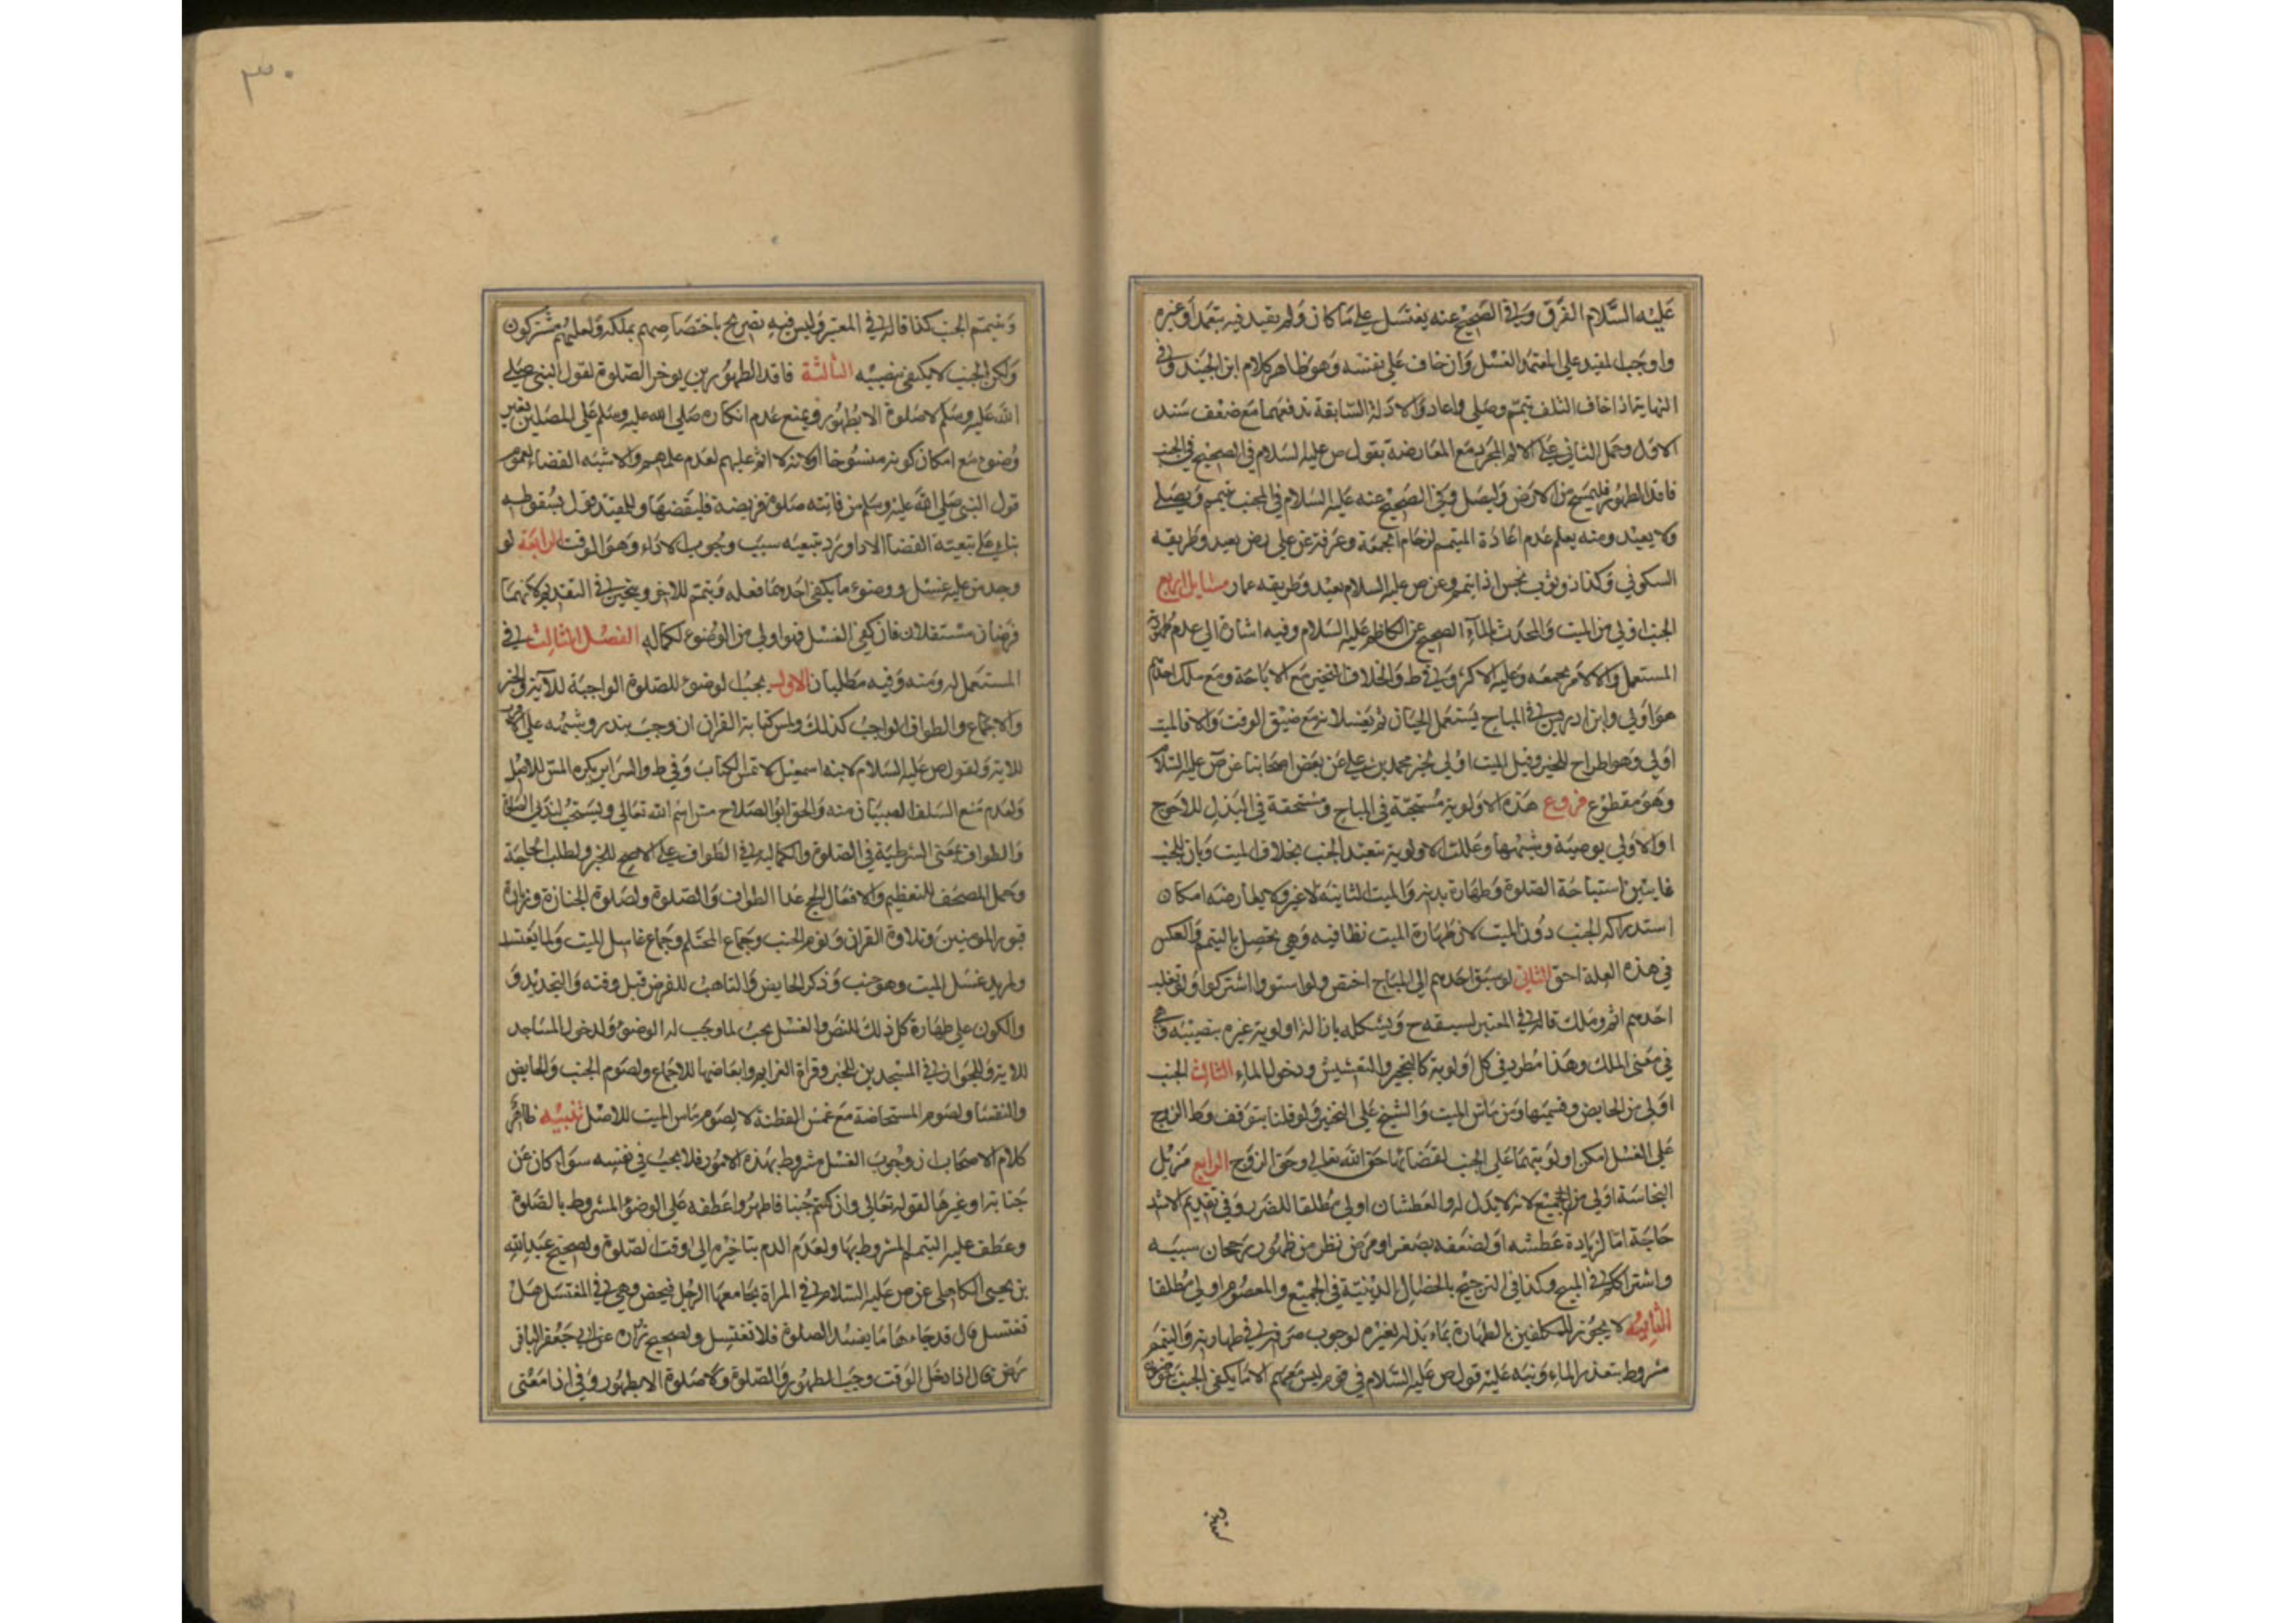 عليه السلام الفرق وفي الصحيح عنه يغتسل على ما كان ولم يقيد فيه بتعمد أو غيره
واوجب المفيد على المتعمد الغسل وان خاف على نفسه وهو ظاهر كلام ابن الجنيد وفي
النهاية اذا خاف التلف تيمم وصلى واعاد والادلة السابقة تدفعهما مع ضعف سند
الاول وحمل الثاني على الالم المجرد مع المعارضة بقول ص عليه السلام في الصحيح في الجنب
فاقد الطهور فليمسح من الارض وليصل وفي الصحيح عنه عليه السلام في المجنب تيمم ويصلى
ولا يعيد ومنه يعلم عدم اعادة المتيمم لزحام الجمعة وعرفة عن علي رض يعيد وطريقه
السكوني وكذا ذو ثوب نجس اذا تيمم وعن ص عليه السلام يعيد وطريقه عمار مسايل اربع
الجنب اولى من الميت والمحدث بالماء الصحيح عن الكاظم عليه السلام وفيه اشارة الى عدم طهورية
المستعمل والا لامر بجمعه وعليه الاكثر وفي ط والخلاف التخير مع الاباحة ومع ملك احدهم
هو اولى وابن ادريس في المباح يستعمل الحيان ثم يغسلانه مع ضيق الوقت والا فالميت
اولى وهو اطراح للخبر وقيل الميت اولى لخبر محمد بن علي عن بعض اصحابنا عن ص عليه السلام
وهو مقطوع فروع هذه الاولوية مستحبة في المباح ومستحقة في البذل للاحوج
او الاولى بوصية وشبهها وعللت الاولوية بتعبد الجنب بخلاف الميت وبان للجنب
غايتين استباحة الصلوة وطهارة بدنه والميت الثانية لا غير ولا يعارضه امكان
استدراكه الجنب دون الميت لان طهارة الميت نظافيه وهي تحصل باليتمم والعكس
في هذه العلة احق الثاني لو سبق احدهم الى المباح اختص ولو استووا اشتركوا ولو تغلب
احدهم اثم وملك قاله في المعتبر لسبقه ح ويشكل بازالة اولوية غيره بنصيبه وهي
في معنى الملك وهذا مطرد في كل اولوية كالتحجير والتعشيش ودخول الماء الثالث الجنب
اولى من الحايض وقسيمتها ومن ماس الميت والشيخ على التخير ولو قلنا بتوقف وطء الزوج
على الغسل امكن اولويتها على الجنب لقضائها حق الله تعالى وحق الزوج الرابع مزيل
النجاسة اولى من الجميع لانه لا بدل له والعطشان اولى مطلقا للضرر وفي تقديم الاشد
حاجة اما لزيادة عطشه او لضعفه بصغر او مرض نظر من ظهور رجحان سببه
واشتراكهم في المبيح وكذا في الترجيح بالخصال الدينية في الجميع والمعصوم اولى مطلقا
الثانية لا يجوز للمكلفين بالطهارة بماء بذله لغيره لوجوب صرفه في طهارته واليتمم
مشروط بتعذر الماء ونبه عليه قول ص عليه السلام في قوم ليس معهم الا ما يكفى الجنب يتوضون
٣٠
ويتيمم الجنب كذا قاله في المعتبر وليس فيه تصريح باختصاصهم بملكه ولعلهم مشتركون
ولكن الجنب لا يكتفى بنصيبه الثالثة فاقد الطهورين يوخر الصلوة لقول النبي صلى
الله عليه وسلم لا صلوة الا بطهور ويمنع عدم انكاره صلى الله عليه وسلم على المصلين بغير
وضوء مع امكان كونه منسوخا او لانه لا اثم عليهم لعدم علمهم والاشبه القضاء لعموم
قول النبي صلى الله عليه وسلم من فاتته صلوة فريضة فليقضها وللمفيد قول بسقوطه
بناء على تبعية القضا الادا ورد بتبعيه سبب وجوب الاداء وهو الوقت الرابعة لو
وجد من عليه غسل ووضوء ما يكفى احدهما فعله ويتمم للاخر ويتخير في التقديم لانهما
فرضان مستقلان فان كفى الغسل فهو اولى من الوضوء لكماله الفصل الثالث في
المستعمل له ومنه وفيه مطلبان الاول يجب الوضوء للصلوة الواجبة للآية والخبر
والاجماع والطواف الواجب كذلك ولمس كتابة القران ان وجب بنذر وشبهه على الاقرب
للاية ولقول ص عليه السلام لابنه اسمعيل لا تمس الكتاب وفي ط والسراير يكره المس للاصل
ولعدم منع السلف الصبيان منه والحق ابو الصلاح مس اسم الله تعالى ويستحب لندبي الصلوة
والطواف بمعنى الشرطية في الصلوة والكمالية في الطواف على الاصح للخبر ولطلب الحاجة
وحمل المصحف للتعظيم والافعال الحج عدا الطواف والصلوة ولصلوة الجنازة وزيارة
قبور المومنين وتلاوة القران ونوم الجنب وجماع المحتلم وجماع غاسل الميت ولما يغتسل
ولمريد غسل الميت وهو جنب وذكر الحايض والتاهب للفرض قبل وقته والتجديد و
والكون على طهارة كل ذلك للنص والغسل يجب لما وجب له الوضوء ولدخول المساجد
للاية وللجواز في المسجدين للخبر وقراة العزايم وابعاضها للاجماع ولصوم الجنب والحايض
والنفسا ولصوم المستحاضة مع غمس القطنة لا لصوم ماس الميت للاصل تنبيه ظاهر
كلام الاصحاب ان وجوب الغسل مشروط بهذه الامور فلا يجب في نفسه سواء كان عن
جنابة او غيرها لقوله تعالى وان كنتم جنبا فاطهروا عطفه على الوضوء المشروط بالصلوة
وعطف عليه اليتمم المشروط بها ولعدم الذم بتاخيره الى وقت الصلوة ولصحيح عبد الله
بن يحيى الكاهلى عن ص عليه السلام في المراة يجامعها الرجل فتحيض وهي في المغتسل هل
تغتسل قال قد جاءها ما يفسد الصلوة فلا تغتسل ولصحيح زرارة عن ابي جعفر الباقر
رض قال اذا دخل الوقت وجب الطهور والصلوة ولا صلوة الا بطهور وفي اذا معنى